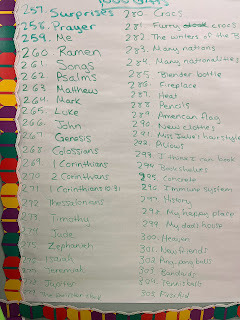 1000 Gifts
257. Surprises
258. Prayer
259. Me
260. Ramen
261. Songs
262. Psalms
263. Matthews
264. Mark
265. Luke
266. John
267. Genesis
268. Colossians
269. 1 Corinthians
270. 2 Corinthians
271. 1 Corinthians 10:31
272. Thessalonians
273. Timothy
274. Jude
275. Zephaniah
276. Isaiah
277. Jeremiah
278. Jupiter
279. The
280. Crocs
281. Furry crocs
282. The writers of the B
283. Many nations
284. Many nationalities
285. Blender bottle
286. Fireplace
287. Heat
288. Pencils
289. American flag
290. New clothes
291. Miss Jake's hairstyle
292. Pillows
293. I think I can book
294. Bookshelves
295. Concrete
296. Immune system
297. History
298. My happy place
299. My dad's house
300. Heaven
301. New friends
302. Ping pong balls
303. Bandaids
304. Tennis balls
305. First aid